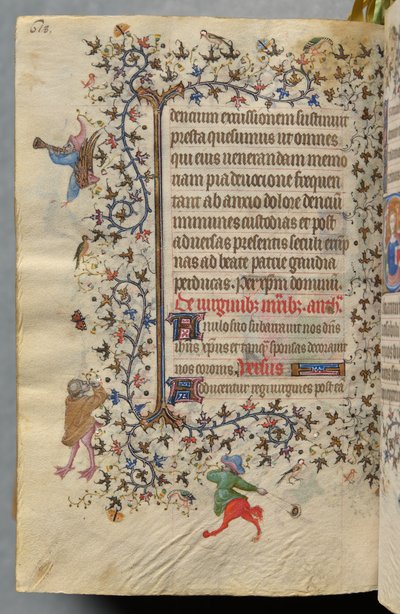 dencium excussionem sustinuit
presta quesumus ut omnes
qui eius venerandam memo
riam pia devocione frequen
tant ab anxio dolore dencium
immunes custodias et post
adversas presentis seculi erup
nas ad beate patrie gaudia
perducas. Per xpm dominum.
De virginibz mribz. anth.
Anulo suo subarravit nos dns
ihus xpus et tanq sponsas decoravit
nos coronis. Versus
Adducentur regi virgines post ea